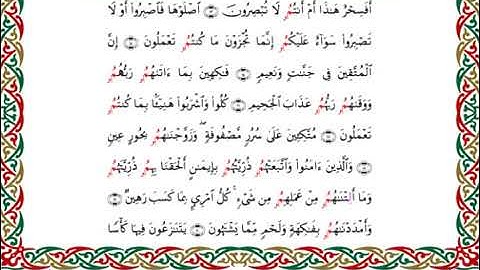 أَفَسِحْرٌ هَٰذَا أَمْ أَنتُمُۥ لَا تُبْصِرُونَ ۝ ٱصْلَوْهَا فَٱصْبِرُوٓا۟ أَوْ لَا
تَصْبِرُوا۟ سَوَآءٌ عَلَيْكُمُۥٓ إِنَّمَا تُجْزَوْنَ مَا كُنتُمُۥ تَعْمَلُونَ ۝ إِنَّ
ٱلْمُتَّقِينَ فِى جَنَّٰتٍ وَنَعِيمٍ ۝ فَٰكِهِينَ بِمَآ ءَاتَىٰهُمُۥ رَبُّهُمُۥ
وَوَقَىٰهُمُۥ رَبُّهُمُۥ عَذَابَ ٱلْجَحِيمِ ۝ كُلُوا۟ وَٱشْرَبُوا۟ هَنِيٓـًٔۢا بِمَا كُنتُمُۥ
تَعْمَلُونَ ۝ مُتَّكِـِٔينَ عَلَىٰ سُرُرٍ مَّصْفُوفَةٍ ۖ وَزَوَّجْنَٰهُمُۥ بِحُورٍ عِينٍ
۝ وَٱلَّذِينَ ءَامَنُوا۟ وَٱتَّبَعَتْهُمُۥ ذُرِّيَّتُهُمُۥ بِإِيمَٰنٍ أَلْحَقْنَا بِهِمُۥ ذُرِّيَّتَهُمُۥ
وَمَآ أَلَتْنَٰهُمُۥ مِنْ عَمَلِهِمُۥ مِن شَىْءٍ ۚ كُلُّ ٱمْرِئٍۭ بِمَا كَسَبَ رَهِينٌ ۝
وَأَمْدَدْنَٰهُمُۥ بِفَٰكِهَةٍ وَلَحْمٍ مِّمَّا يَشْتَهُونَ ۝ يَتَنَٰزَعُونَ فِيهَا كَأْسًا